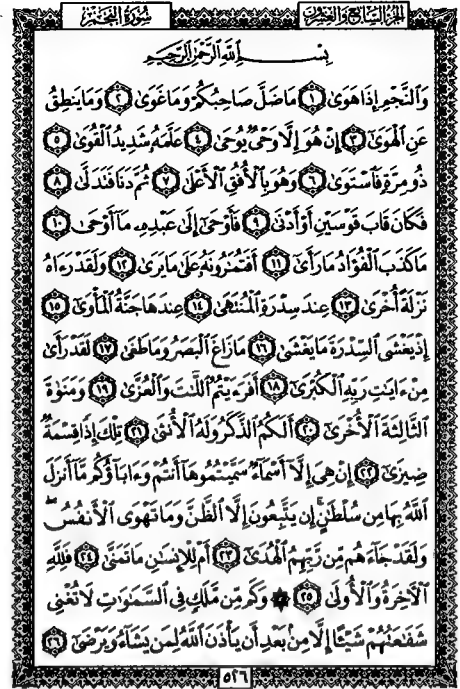 الجزء السابع والعشرون سورة النجم
بِسْمِ اللَّهِ الرَّحْمَٰنِ الرَّحِيمِ
وَالنَّجْمِ إِذَا هَوَىٰ ١ مَا ضَلَّ صَاحِبُكُمْ وَمَا غَوَىٰ ٢ وَمَا يَنطِقُ
عَنِ الْهَوَىٰ ٣ إِنْ هُوَ إِلَّا وَحْيٌ يُوحَىٰ ٤ عَلَّمَهُ شَدِيدُ الْقُوَىٰ ٥
ذُو مِرَّةٍ فَاسْتَوَىٰ ٦ وَهُوَ بِالْأُفُقِ الْأَعْلَىٰ ٧ ثُمَّ دَنَا فَتَدَلَّىٰ ٨
فَكَانَ قَابَ قَوْسَيْنِ أَوْ أَدْنَىٰ ٩ فَأَوْحَىٰ إِلَىٰ عَبْدِهِ مَا أَوْحَىٰ ١٠
مَا كَذَبَ الْفُؤَادُ مَا رَأَىٰ ١١ أَفَتُمَارُونَهُ عَلَىٰ مَا يَرَىٰ ١٢ وَلَقَدْ رَءَاهُ
نَزْلَةً أُخْرَىٰ ١٣ عِندَ سِدْرَةِ الْمُنتَهَىٰ ١٤ عِندَهَا جَنَّةُ الْمَأْوَىٰ ١٥
إِذْ يَغْشَى السِّدْرَةَ مَا يَغْشَىٰ ١٦ مَا زَاغَ الْبَصَرُ وَمَا طَغَىٰ ١٧ لَقَدْ رَأَىٰ
مِنْ ءَايَٰتِ رَبِّهِ الْكُبْرَىٰ ١٨ أَفَرَءَيْتُمُ اللَّٰتَ وَالْعُزَّىٰ ١٩ وَمَنَوٰةَ
الثَّالِثَةَ الْأُخْرَىٰ ٢٠ أَلَكُمُ الذَّكَرُ وَلَهُ الْأُنثَىٰ ٢١ تِلْكَ إِذًا قِسْمَةٌ
ضِيزَىٰ ٢٢ إِنْ هِيَ إِلَّا أَسْمَاءٌ سَمَّيْتُمُوهَا أَنتُمْ وَءَابَاؤُكُم مَّا أَنزَلَ
اللَّهُ بِهَا مِن سُلْطَٰنٍ ۚ إِن يَتَّبِعُونَ إِلَّا الظَّنَّ وَمَا تَهْوَى الْأَنفُسُ ۖ
وَلَقَدْ جَاءَهُم مِّن رَّبِّهِمُ الْهُدَىٰ ٢٣ أَمْ لِلْإِنسَٰنِ مَا تَمَنَّىٰ ٢٤ فَلِلَّهِ
الْآخِرَةُ وَالْأُولَىٰ ٢٥ ۞ وَكَم مِّن مَّلَكٍ فِي السَّمَٰوَٰتِ لَا تُغْنِي
شَفَٰعَتُهُمْ شَيْـًٔا إِلَّا مِن بَعْدِ أَن يَأْذَنَ اللَّهُ لِمَن يَشَاءُ وَيَرْضَىٰ ٢٦
٥٢٦